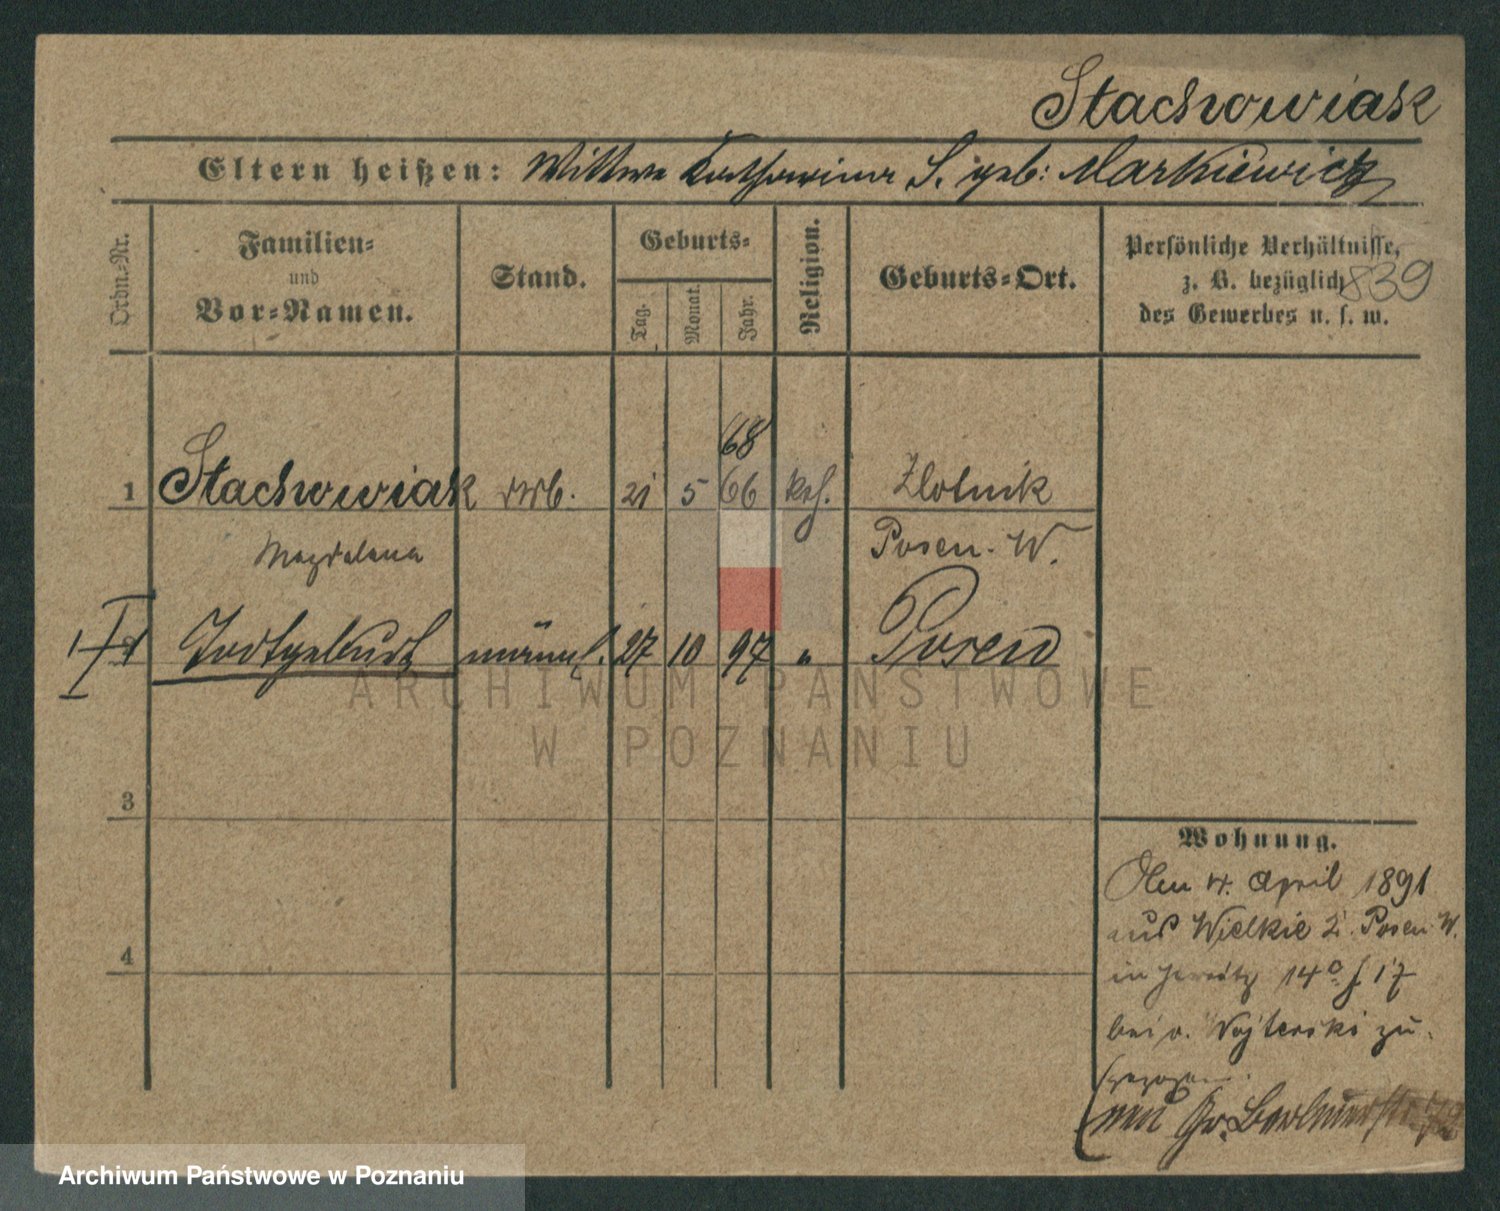 Stachowiak
Eltern heißen: Wittwe Katharina S. geb: Markiewicz
Ordn.-Nr.
Familien-
und
Vor-Namen.
Stand.
Geburts-
Tag.
Monat.
Jahr.
Religion.
Geburts-Ort.
Persönliche Verhältnisse,
z. B. bezüglich
des Gewerbes u. s. w.
839
68
1 Stachowiak 21 5 66 kath. Zlotnik
Magdalena Posen. W.
Todtgeburt männl. 27 10 97 " Posen
3
4
Wohnung.
Den 4. April 1891
aus Wielkie Posen W.
in Jersitz 14 17
bei Wojterski zu-
gezogen.
Gr. Berliner
ARCHIWUM PAŃSTWOWE
W POZNANIU
Archiwum Państwowe w Poznaniu